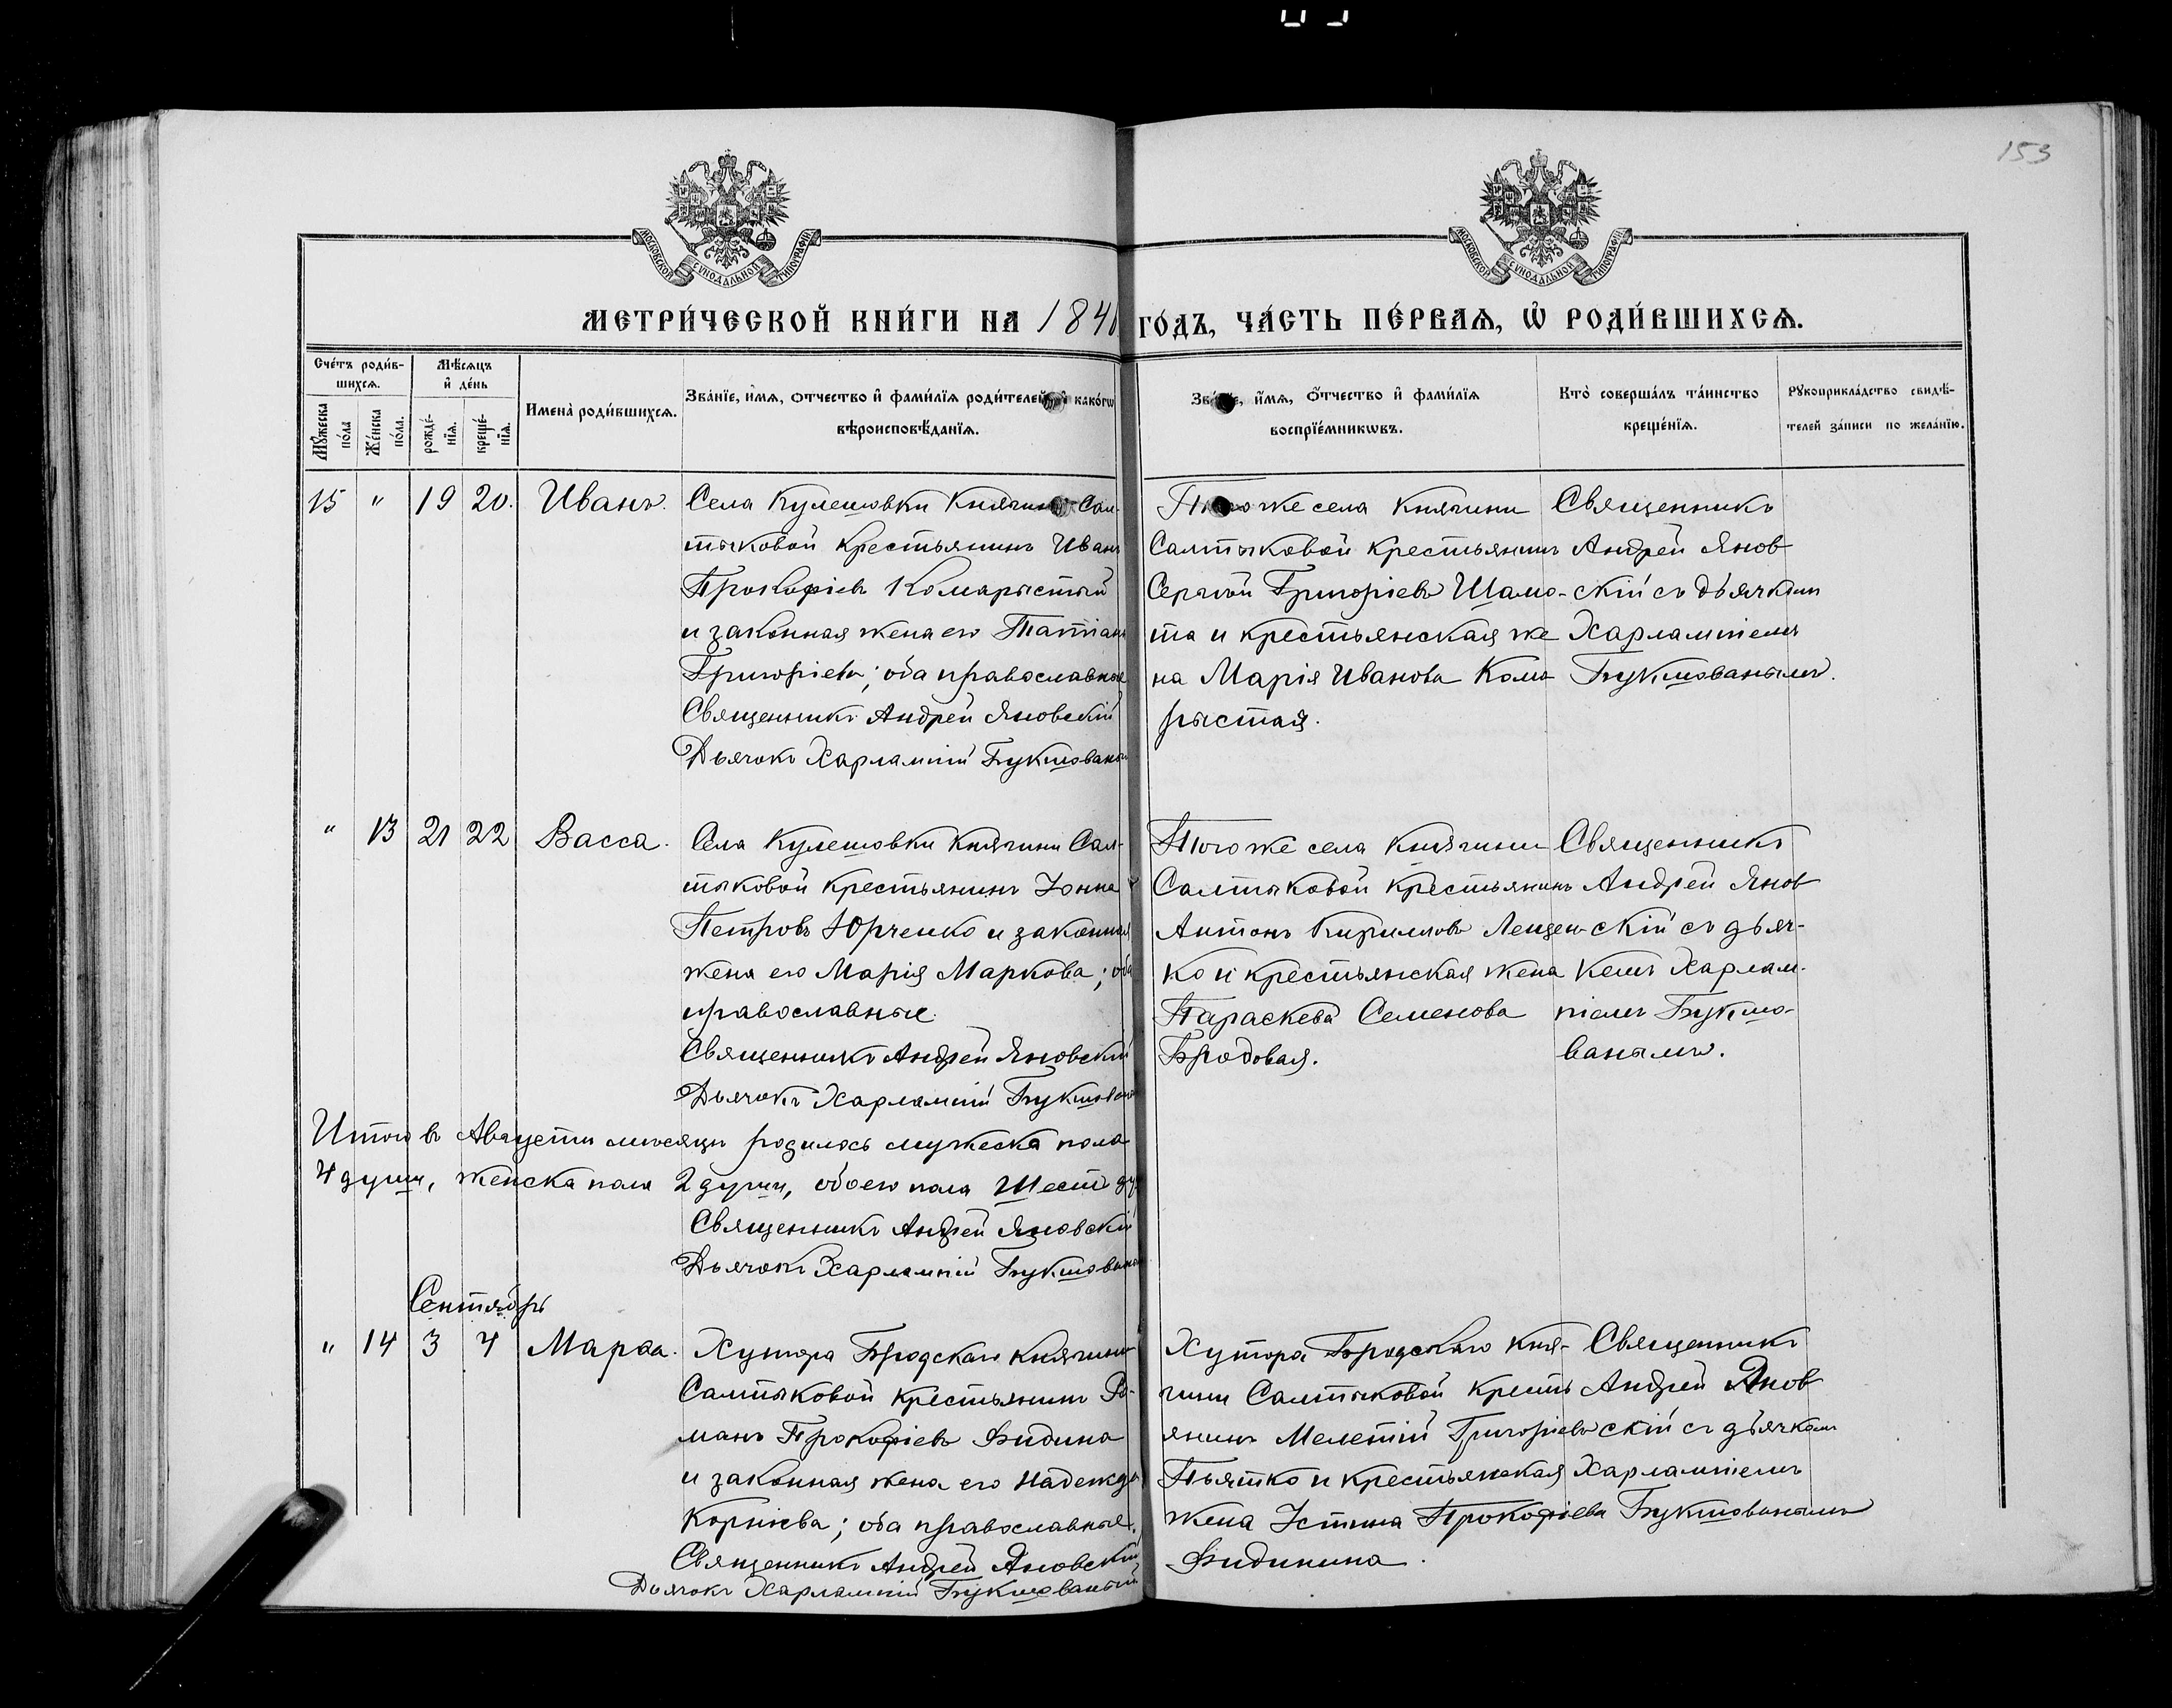 153
МОСКОВСКОЙ СУНОДАЛЬНОЙ ТИПОГРАФІИ
МОСКОВСКОЙ СУНОДАЛЬНОЙ ТИПОГРАФІИ
МЕТРИ́ЧЕСКОЙ КНИ́ГИ НА 184
ГО́ДЪ, ЧА́СТЬ ПЕ́РВАѦ, Ѡ РОДИ́ВШИХСѦ.
Сче́тъ роди́в-
шихсѧ.
Мꙋ́жеска
по́ла
Же́нска
по́ла.
Мѣ́сѧцъ
и де́нь
рожде́-
нїѧ.
креще́-
нїѧ.
Имена̀ роди́вшихсѧ.
Зва́нїе, и́мѧ, о́тчество и фами́лїѧ роди́телей како́гѡ
вѣроисповѣ́данїѧ.
и́мѧ, о́тчество и фами́лїѧ
воспрїе́мникѡвъ.
Кто̀ соверша́лъ та́инство
креще́нїѧ.
Рꙋкоприкла́дство свидѣ́-
телей за́писи по жела́нїю.
15 " 19 20. Иванъ.
Села Кулешовки Княгини Сал-
тыковой крестьянинъ Иванъ
Прокофіевъ Комарыстый
и законная жена его Татіана
Григоріева; оба православные
Священникъ Андрей Яновскій
Дьячокъ Харлампій Букшованый
Того же села Княгини
Салтыковой крестьянинъ
Сергѣй Григоріевъ Шамо-
та и крестьянская же
на Марія Иванова Кома
рыстая.
Священникъ
Андрей Янов
скій съ дьячкомъ
Харлампіемъ
Букшованымъ.
" 13 21 22 Васса.
Села Кулешовки Княгини Сал-
тыковой крестьянинъ Іонна
Петровъ Юрченко и законная
жена его Марія Маркова; оба
православные.
Священникъ Андрей Яновскій
Дьячокъ Харлампій Букшованый
Того же села Княгини
Салтыковой крестьянинъ
Антонъ Кирилловъ Лещен-
ко и крестьянская жена
Параскева Семенова
Бродовая.
Священникъ
Андрей Янов
скій съ дьяч-
комъ Харлам-
піемъ Букшо-
ванымъ.
Итого въ Августѣ мѣсяцѣ родилось мужеска пола
4 души, женска пола 2 души, обоего пола шесть душ
Священникъ Андрей Яновскій
Дьячокъ Харлампій Букшованый
Сентябрь
" 14 3 4 Марѳа.
Хутора Бродскаго Княгини
Салтыковой крестьянинъ Ро-
манъ Прокофіевъ Бидина
и законная жена его Надежда
Корніева; оба православные.
Священникъ Андрей Яновскій
Дьячокъ Харлампій Букшованый
Хутора Бродскаго Кня-
гини Салтыковой кресть
янинъ Мелетій Григоріевъ
Пьятко и крестьянская
жена Іустина Прокофіева
Бидинина.
Священникъ
Андрей Янов
скій съ дьячкомъ
Харлампіемъ
Букшованымъ